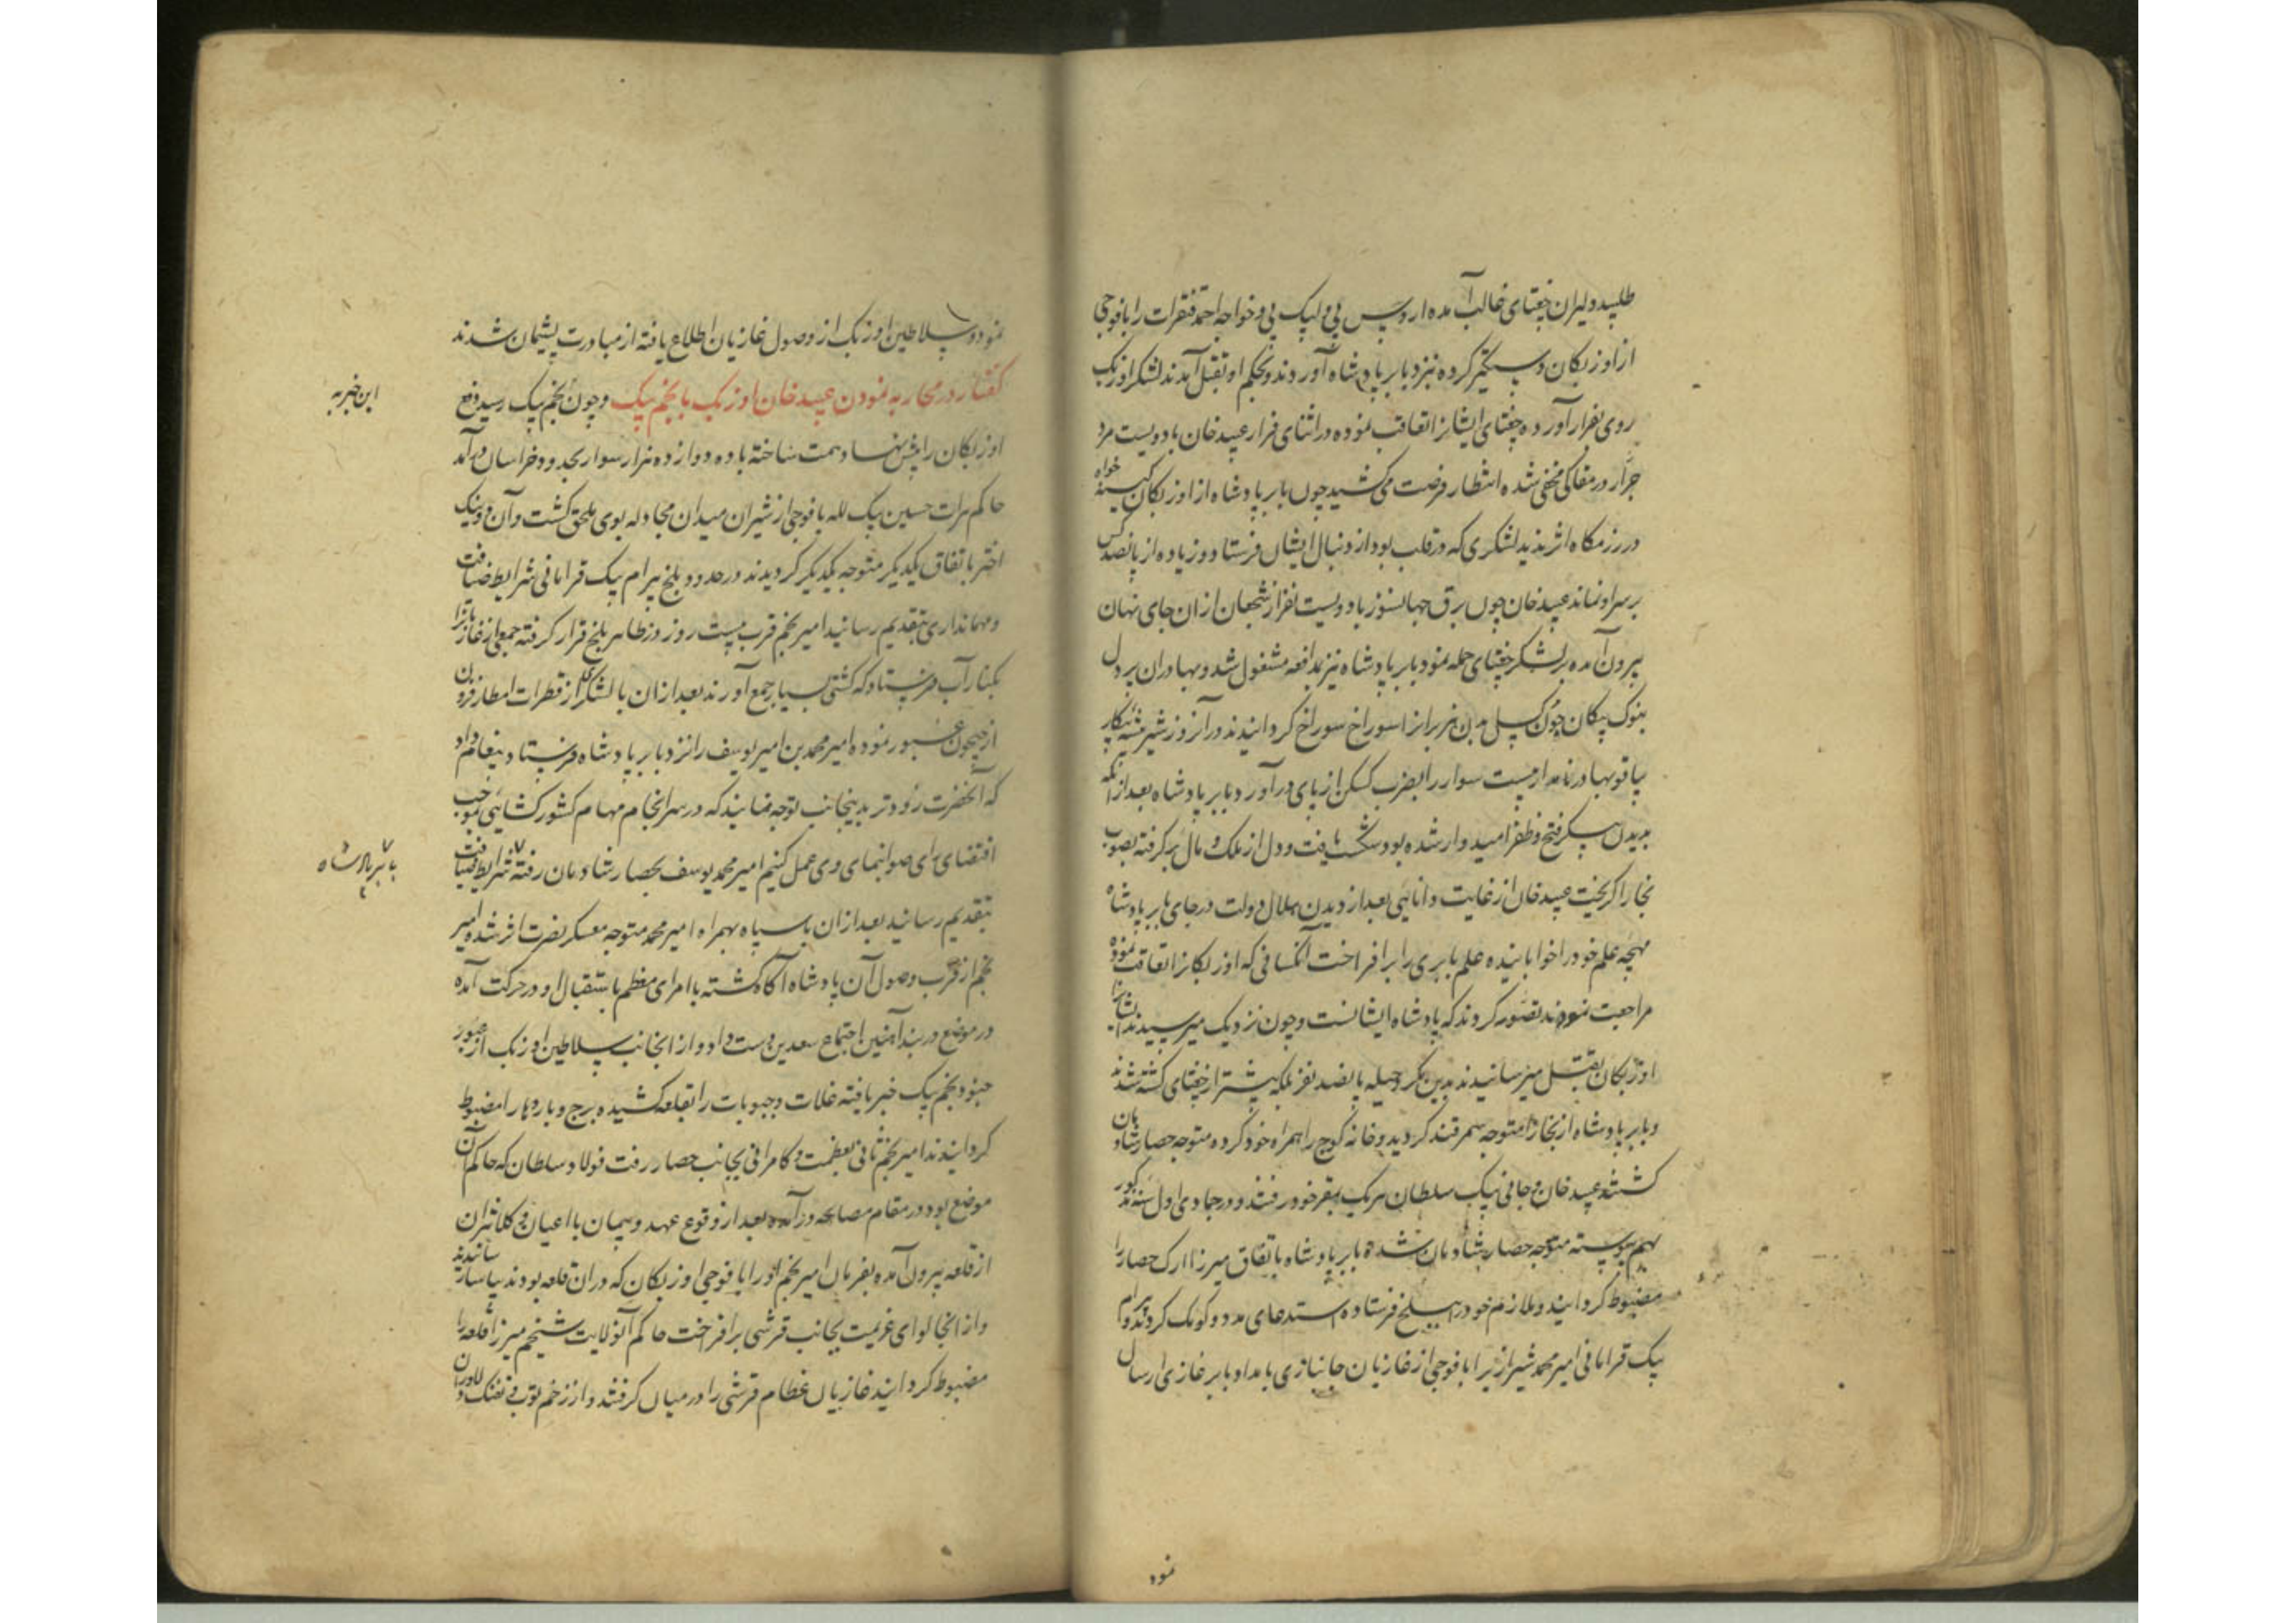 طلبید دلیران چغتای غالب آمده اروس بی و لپک پی و خواجه احمد قنقرات را با فوجی
از اوزبکان دستگیر کرده نزد بابر پادشاه آوردند و بحکم او بقتل آمدند لشکر اوزبک
روی بفرار آورده چغتای ایشانرا تعاقب نموده در اثنای فرار عبید خان با دویست مرد
جرار در مغاکی مخفی شده انتظار فرصت می کشید چون بابر پادشاه از اوزبکان کینه خواه
در رزمگاه اثر ندید لشکری که در قلب بود از دنبال ایشان فرستاد و زیاده از پانصد کس
بر سر او نماند عبید خان چون برق جهانسوز با دویست نفر از شجعان ازان جای نهان
بیرون آمده بر لشکر چغتای حمله نمود بابر پادشاه نیز بمدافعه مشغول شد و بهادران پر دل
بنوک پیکان چون بدن هزبرانرا سوراخ سوراخ کردانیدند در آنروز شیر بیشه پیکار
پیاقو بهادر نامدار بیست سوار را بضرب از پای در آورد بابر پادشاه بعد از آنکه
بدیدن پیکر فتح و ظفر امیدوار شده بود شکست یافت و دل از ملک و مال برگرفته بصوب
بخارا کریخت عبید خان از غایت دانایی بعد از دیدن هلال دولت در جای بابر پادشاه
مهچه علم خود را خوابانیده علم بابری را بر افراخت آنکسانی که اوزبکانرا تعاقب نموده
مراجعت نمودند تصور کردند که پادشاه ایشانست و چون نزدیک میرسیدند ایشانرا
اوزبکان بقتل میرسانیدند بدین مکر و حیله پانصد نفر بلکه بیشتر از چغتای کشته شدند
و بابر پادشاه از بخارا متوجه سمرقند کردید و خانه کوچ را همراه خود کرده متوجه حصار شادمان
کشتند عبید خان و جانی بیک سلطان هر یک بمقر خود رفتند و در جمادی اول سنه مذکور
بهم پیوسته متوجه حصار شادمان شدند بابر پادشاه باتفاق میرزا ارک حصار را
مضبوط کردانید و ملازم خود را ببلخ فرستاده استدعای مدد و کومک کردند و بیرام
بیک قرامانی امیر محمد شیرازیرا با فوجی از غازیان جانبازی بامداد بابر غازی ارسال
نمود
نمود و سلاطین اوزبک از وصول غازیان اطلاع یافته از مبادرت پشیمان شدند
گفتار در محاربه نمودن عبید خان اوزبک با نجم بیک و چون نجم بیک رسید دفع
این خبر به
اوزبکان را پیش نهاد همت ساخته با ده دوازده هزار سوار بحدود خراسان درآمد
حاکم هرات حسین بیک لله با فوجی از شیران میدان مجادله بوی ملحق کشت و آن دو نیک
اختر باتفاق یکدیکر متوجه یکدیکر کردیدند در حدود بلخ بیرام بیک قرامانی شرایط ضیافت
و مهمانداری بتقدیم رسانید امیر نجم قرب بیست روز در ظاهر بلخ قرار کرفته جمعی از غازیانرا
بکنار آب فرستاد که کشتی بسیار جمع آورند بعد ازان با لشکری از قطرات امطار فزون
از جیحون عبور نموده امیر محمد بن امیر یوسف را نزد بابر پادشاه فرستاد و پیغام داد
که آنحضرت زودتر بدینجانب توجه نمایند که در سرانجام مهام کشور کشایی بموجب
اقتضای رای صوابنمای وی عمل کنیم امیر محمد یوسف بحصار شادمان رفته شرایط ضیافت
بابر پادشاه
بتقدیم رسانید بعد ازان با سپاه همراه امیر محمد متوجه معسکر نصرت اثر شد و امیر
نجم از قرب وصول آن پادشاه آکاه کشته با امرای معظم باستقبال او در حرکت آمده
در موضع دربند آهنین اجتماع سعدین دست داد و از انجانب سلاطین اوزبک از عبور
جنود نجم بیک خبر یافته غلات و حبوبات را بقلعه کشیده برج و باروها را مضبوط
کردانیدند امیر نجم ثانی بعظمت و کامرانی بجانب حصار رفت فولاد سلطان که حاکم آن
موضع بود در مقام مصالحه درآمده بعد از وقوع عهد و پیمان با اعیان و کلانتران
از قلعه بیرون آمده بفرمان امیر نجم او را با فوجی اوزبکان که دران قلعه بودند بیاسا رسانیدند
و از انجا لوای عزیمت بجانب قرشی برافراخت حاکم آنولایت شیخم میرزا قلعه را
مضبوط کردانید غازیان عظام قرشی را در میان کرفتند و از زخم توپ و تفنک دلاوران